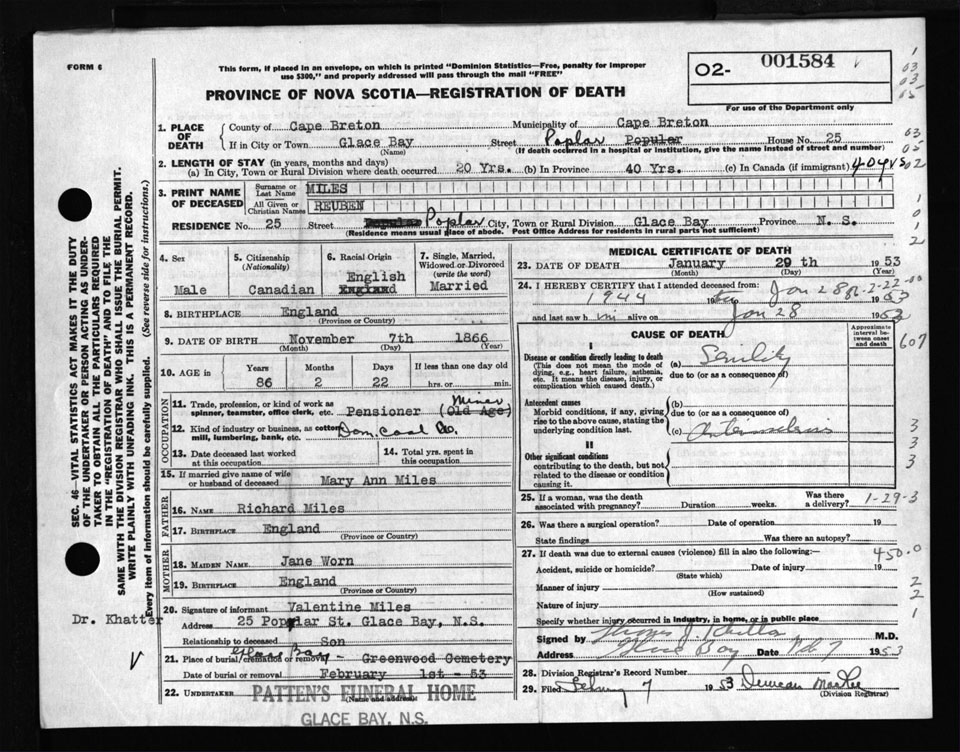 FORM 6
This form, if placed in an envelope, on which is printed "Dominion Statistics—Free, penalty for improper
use $300," and properly addressed will pass through the mail "FREE"
PROVINCE OF NOVA SCOTIA—REGISTRATION OF DEATH
O2- 001584
For use of the Department only
1. PLACE OF DEATH
County of Cape Breton Municipality of Cape Breton
If in City or Town Glace Bay Street Poplar Popular House No. 25
(Name) (If death occurred in a hospital or institution, give the name instead of street and number)
2. LENGTH OF STAY (in years, months and days)
(a) In City, Town or Rural Division where death occurred 20 Yrs. (b) In Province 40 Yrs. (c) In Canada (if immigrant) 40 yrs
3. PRINT NAME OF DECEASED
Surname or Last Name MILES
All Given or Christian Names REUBEN
RESIDENCE No. 25 Street Popular Poplar City, Town or Rural Division Glace Bay Province N. S.
(Residence means usual place of abode. Post Office Address for residents in rural parts not sufficient)
4. Sex Male
5. Citizenship (Nationality) Canadian
6. Racial Origin English England
7. Single, Married, Widowed or Divorced (write the word) Married
8. BIRTHPLACE England
(Province or Country)
9. DATE OF BIRTH November 7th 1866
(Month) (Day) (Year)
10. AGE in Years Months Days If less than one day old
86 2 22 hrs. or min.
OCCUPATION
11. Trade, profession, or kind of work as
spinner, teamster, office clerk, etc. Pensioner (Old Age) Miner
12. Kind of industry or business, as cotton
mill, lumbering, bank, etc. Dom. Coal Co.
13. Date deceased last worked
at this occupation
14. Total yrs. spent in
this occupation
15. If married give name of wife
or husband of deceased Mary Ann Miles
FATHER
16. NAME Richard Miles
17. BIRTHPLACE England
(Province or Country)
MOTHER
18. MAIDEN NAME Jane Worn
19. BIRTHPLACE England
(Province or Country)
20. Signature of informant Valentine Miles
Address 25 Poplar St. Glace Bay, N.S.
Relationship to deceased Son
21. Place of burial/cremation or removal Glace Bay - Greenwood Cemetery
Date of burial or removal February 1st - 53
22. UNDERTAKER PATTEN'S FUNERAL HOME
(Name and address)
GLACE BAY, N.S.
MEDICAL CERTIFICATE OF DEATH
23. DATE OF DEATH January 29 th 1953
(Month) (Day) (Year)
24. I HEREBY CERTIFY that I attended deceased from:
1944 19 to Jan 28 1953
86-2-22-00
and last saw him alive on Jan 28 1953
CAUSE OF DEATH
Approximate interval between onset and death
607
I
Disease or condition directly leading to death
(This does not mean the mode of
dying, e.g., heart failure, asthenia,
etc. It means the disease, injury, or
complication which caused death.)
(a) Senility
due to (or as a consequence of)
Antecedent causes
Morbid conditions, if any, giving
rise to the above cause, stating the
underlying condition last.
(b)
due to (or as a consequence of)
(c)
II
Other significant conditions
contributing to the death, but not
related to the disease or condition
causing it.
25. If a woman, was the death
associated with pregnancy? Duration weeks. Was there a delivery?
1-29-3
26. Was there a surgical operation? Date of operation 19
State findings Was there an autopsy?
27. If death was due to external causes (violence) fill in also the following:
450.0
Accident, suicide or homicide? Date of injury 19
(State which)
Manner of injury
(How sustained)
Nature of injury
Specify whether injury occurred in industry, in home, or in public place
Signed by M.D.
Address Glace Bay Date Feb 7 1953
28. Division Registrar's Record Number
29. Filed 7 1953 Duncan
(Division Registrar)
SEC. 46—VITAL STATISTICS ACT MAKES IT THE DUTY
OF THE UNDERTAKER OR PERSON ACTING AS UNDER-
TAKER TO OBTAIN ALL THE PARTICULARS REQUIRED
IN THE "REGISTRATION OF DEATH" AND TO FILE THE
SAME WITH THE DIVISION REGISTRAR WHO SHALL ISSUE THE BURIAL PERMIT.
WRITE PLAINLY WITH UNFADING INK. THIS IS A PERMANENT RECORD.
Every item of information should be carefully supplied. (See reverse side for instructions.)
Dr. Khatter
1
03
03
15
03
05
02
1
0
1
2
3
3
3
2
2
1